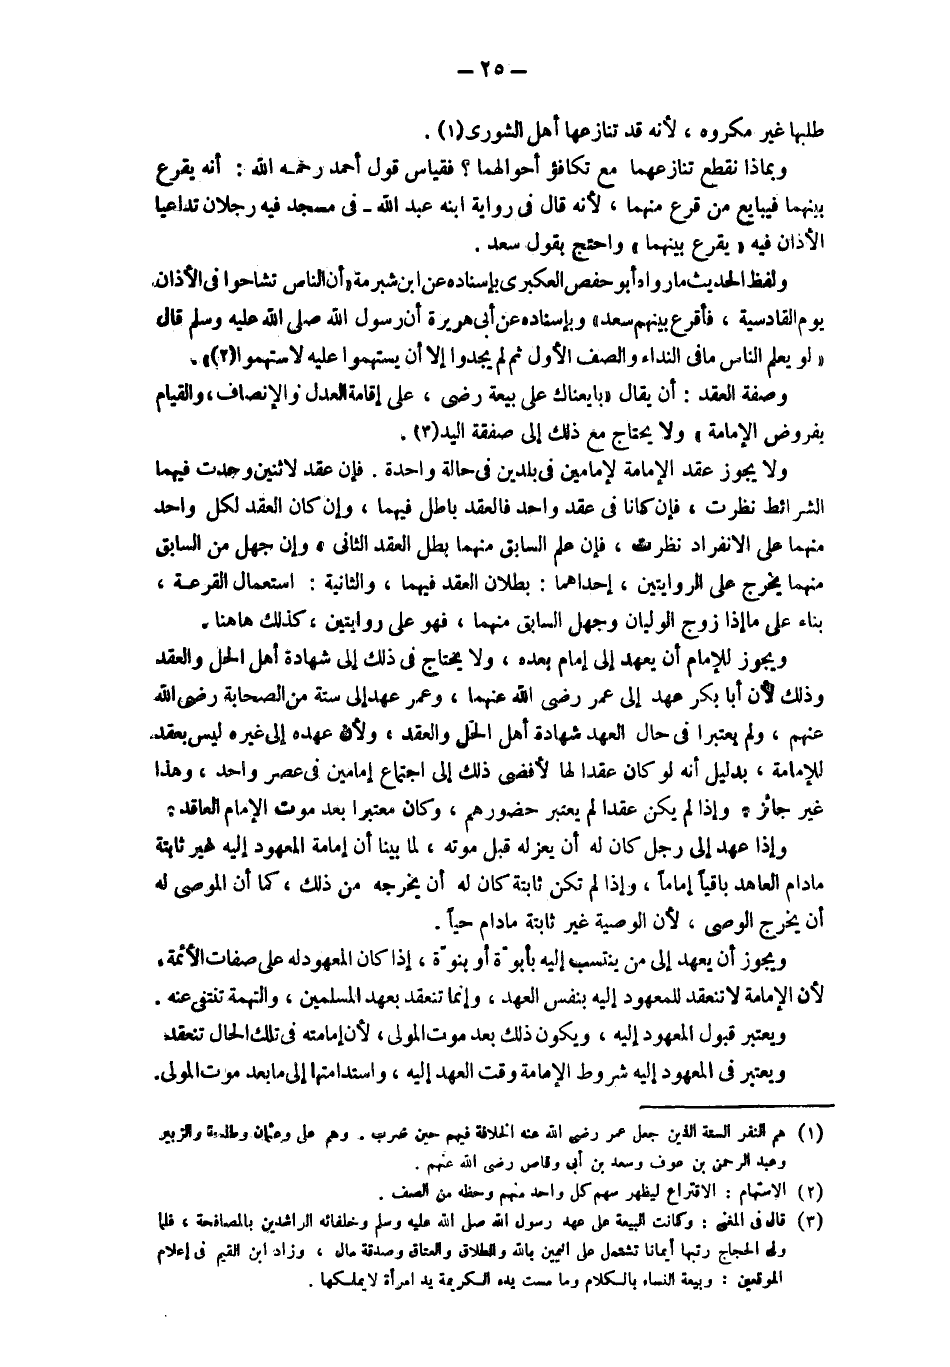 — ٢٥ —
طلبها غير مكروه ، لأنه قد تنازعها أهل الشورى(١) .
وبماذا نقطع تنازعهما مع تكافؤ أحوالهما ؟ فقياس قول أحمد رحمه الله : أنه يقرع
بينهما فيبايع من قرع منهما ، لأنه قال فى رواية ابنه عبد الله ـ فى مسجد فيه رجلان تداعيا
الأذان فيه « يقرع بينهما » واحتج بقول سعد .
ولفظ الحديث مارواه أبو حفص العكبرى بإسناده عن ابن شبرمة «أن الناس تشاحوا فى الأذان
يوم القادسية ، فأقرع بينهم سعد» وبإسناده عن أبى هريرة أن رسول الله صلى الله عليه وسلم قال
« لو يعلم الناس مافى النداء والصف الأول ثم لم يجدوا إلا أن يستهموا عليه لاستهموا(٢)» .
وصفة العقد : أن يقال «بايعناك على بيعة رضى ، على إقامة العدل والإنصاف ، والقيام
بفروض الإمامة » ولا يحتاج مع ذلك إلى صفقة اليد(٣) .
ولا يجوز عقد الإمامة لإمامين فى بلدين فى حالة واحدة . فإن عقد لاثنين وجدت فيهما
الشرائط نظرت ، فإن كانا فى عقد واحد فالعقد باطل فيهما ، وإن كان العقد لكل واحد
منهما على الانفراد نظرت ، فإن علم السابق منهما بطل العقد الثانى ، وإن جهل من السابق
منهما يخرج على الروايتين ، إحداهما : بطلان العقد فيهما ، والثانية : استعمال القرعة ،
بناء على ماإذا زوج الوليان وجهل السابق منهما ، فهو على روايتين ، كذلك هاهنا .
ويجوز للإمام أن يعهد إلى إمام بعده ، ولا يحتاج فى ذلك إلى شهادة أهل الحل والعقد
وذلك لأن أبا بكر عهد إلى عمر رضى الله عنهما ، وعمر عهد إلى ستة من الصحابة رضى الله
عنهم ، ولم يعتبرا فى حال العهد شهادة أهل الحل والعقد ، ولأن عهده إلى غيره ليس بعقد
للإمامة ، بدليل أنه لو كان عقدا لها لأفضى ذلك إلى اجتماع إمامين فى عصر واحد ، وهذا
غير جائز ، وإذا لم يكن عقدا لم يعتبر حضورهم ، وكان معتبرا بعد موت الإمام العاقد ؛
وإذا عهد إلى رجل كان له أن يعزله قبل موته ، لما بينا أن إمامة المعهود إليه غير ثابتة
مادام العاهد باقياً إماماً ، وإذا لم تكن ثابتة كان له أن يخرجه من ذلك ، كما أن الموصى له
أن يخرج الوصى ، لأن الوصية غير ثابتة مادام حياً .
ويجوز أن يعهد إلى من ينتسب إليه بأبوّة أو بنوّة ، إذا كان المعهود له على صفات الأئمة ،
لأن الإمامة لا تنعقد للمعهود إليه بنفس العهد ، وإنما تنعقد بعهد المسلمين ، والتهمة تنتفى عنه .
ويعتبر قبول المعهود إليه ، ويكون ذلك بعد موت المولى ، لأن إمامته فى تلك الحال تنعقد
ويعتبر فى المعهود إليه شروط الإمامة وقت العهد إليه ، واستدامتها إلى مابعد موت المولى .
(١) هم النفر الستة الذين جعل عمر رضى الله عنه الخلافة فيهم حين ضرب . وهم على وعثمان وطلحة والزبير
وعبد الرحمن بن عوف وسعد بن أبى وقاص رضى الله عنهم .
(٢) الاستهام : الاقتراع ليظهر سهم كل واحد منهم وحظه من الصف .
(٣) قال فى المغنى : وكانت البيعة على عهد رسول الله صلى الله عليه وسلم وخلفائه الراشدين بالمصافحة ، فلما
ولى الحجاج رتبها أيمانا تشتمل على اليمين بالله والطلاق والعتاق وصدقة مال ، وزاد ابن القيم فى إعلام
الموقعين : وبيعة النساء بالكلام وما مست يده الكريمة يد امرأة لا يملكها .